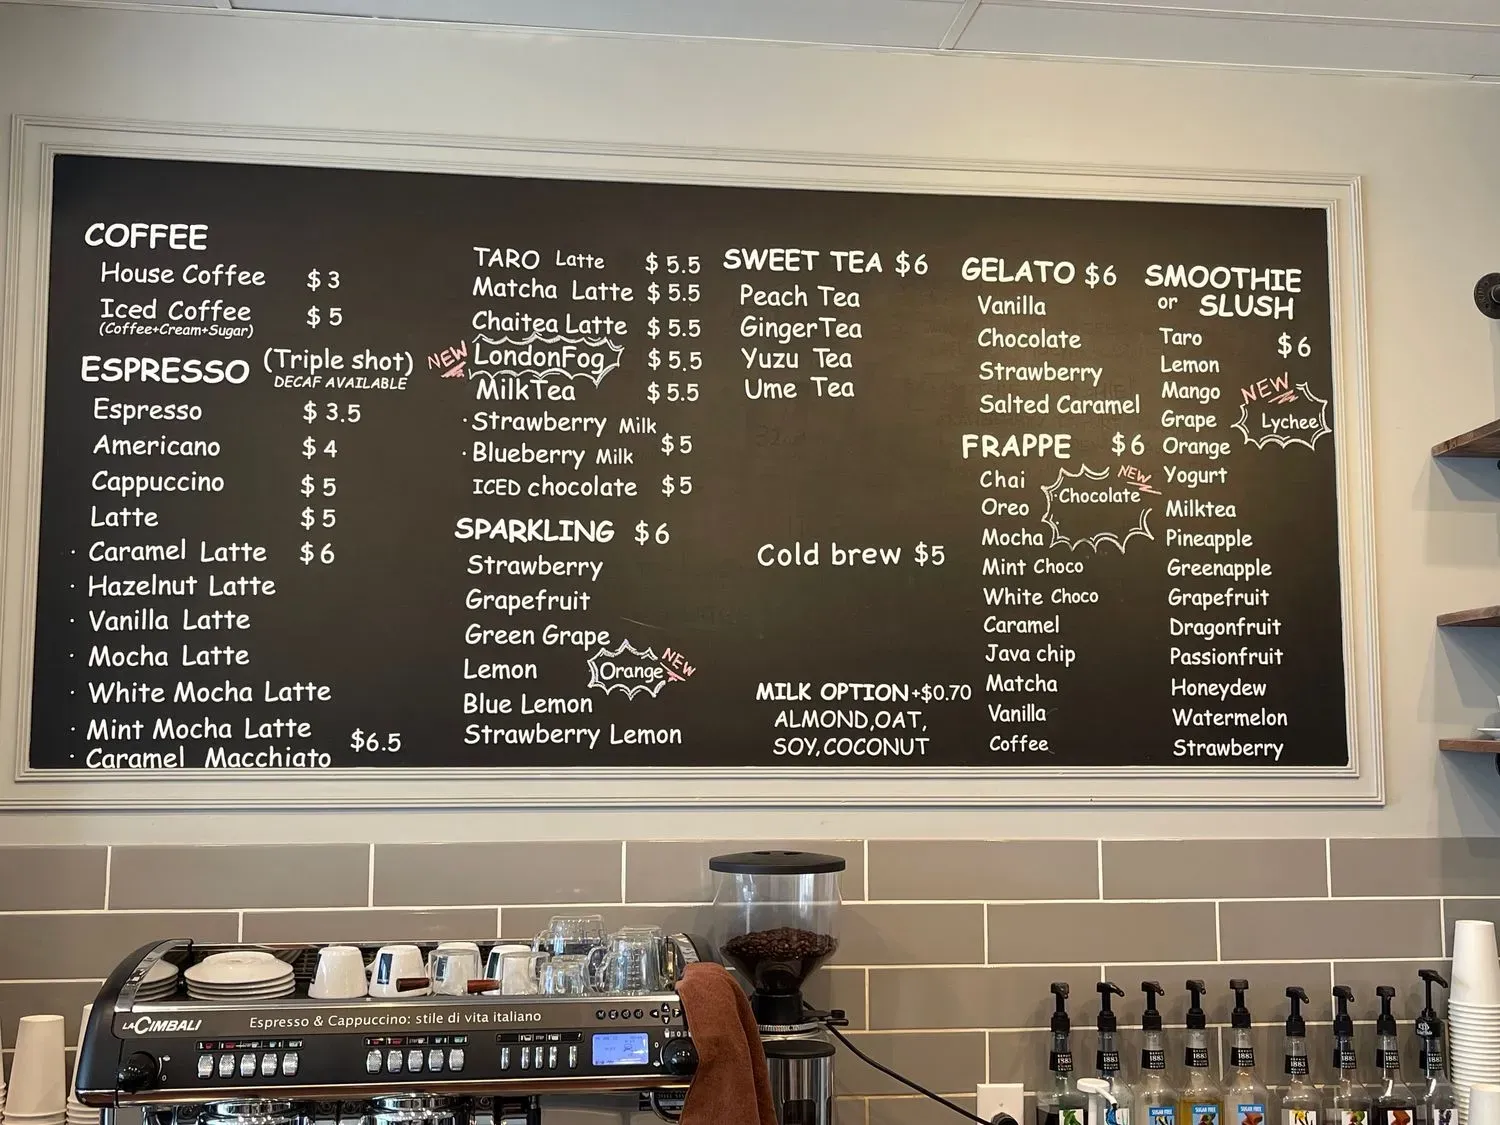 COFFEE
House Coffee $3
Iced Coffee $5
(Coffee+Cream+Sugar)
ESPRESSO (Triple shot)
DECAF AVAILABLE
Espresso $3.5
Americano $4
Cappuccino $5
Latte $5
· Caramel Latte $6
· Hazelnut Latte
· Vanilla Latte
· Mocha Latte
· White Mocha Latte
· Mint Mocha Latte
$6.5
· Caramel Macchiato
TARO Latte $5.5
Matcha Latte $5.5
Chaitea Latte $5.5
NEW LondonFog $5.5
MilkTea $5.5
· Strawberry Milk
$5
· Blueberry Milk
ICED chocolate $5
SPARKLING $6
Strawberry
Grapefruit
Green Grape
Lemon
Orange NEW
Blue Lemon
Strawberry Lemon
SWEET TEA $6
Peach Tea
GingerTea
Yuzu Tea
Ume Tea
Cold brew $5
MILK OPTION+$0.70
ALMOND,OAT,
SOY,COCONUT
GELATO $6
Vanilla
Chocolate
Strawberry
Salted Caramel
FRAPPE $6
Chai
NEW
Chocolate
Oreo
Mocha
Mint Choco
White Choco
Caramel
Java chip
Matcha
Vanilla
Coffee
SMOOTHIE
or SLUSH
$6
Taro
Lemon
Mango
NEW
Lychee
Grape
Orange
Yogurt
Milktea
Pineapple
Greenapple
Grapefruit
Dragonfruit
Passionfruit
Honeydew
Watermelon
Strawberry
LACIMBALI Espresso & Cappuccino: stile di vita italiano
1883
1883
1883
1883
1883
1883
1883
1883
SUGAR FREE
SUGAR FREE
SUGAR FREE